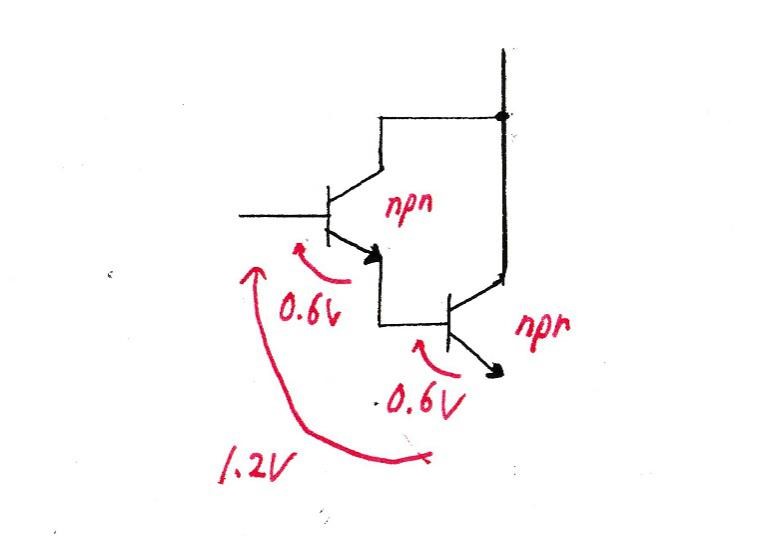 npn
0.6V
npn
0.6V
1.2V